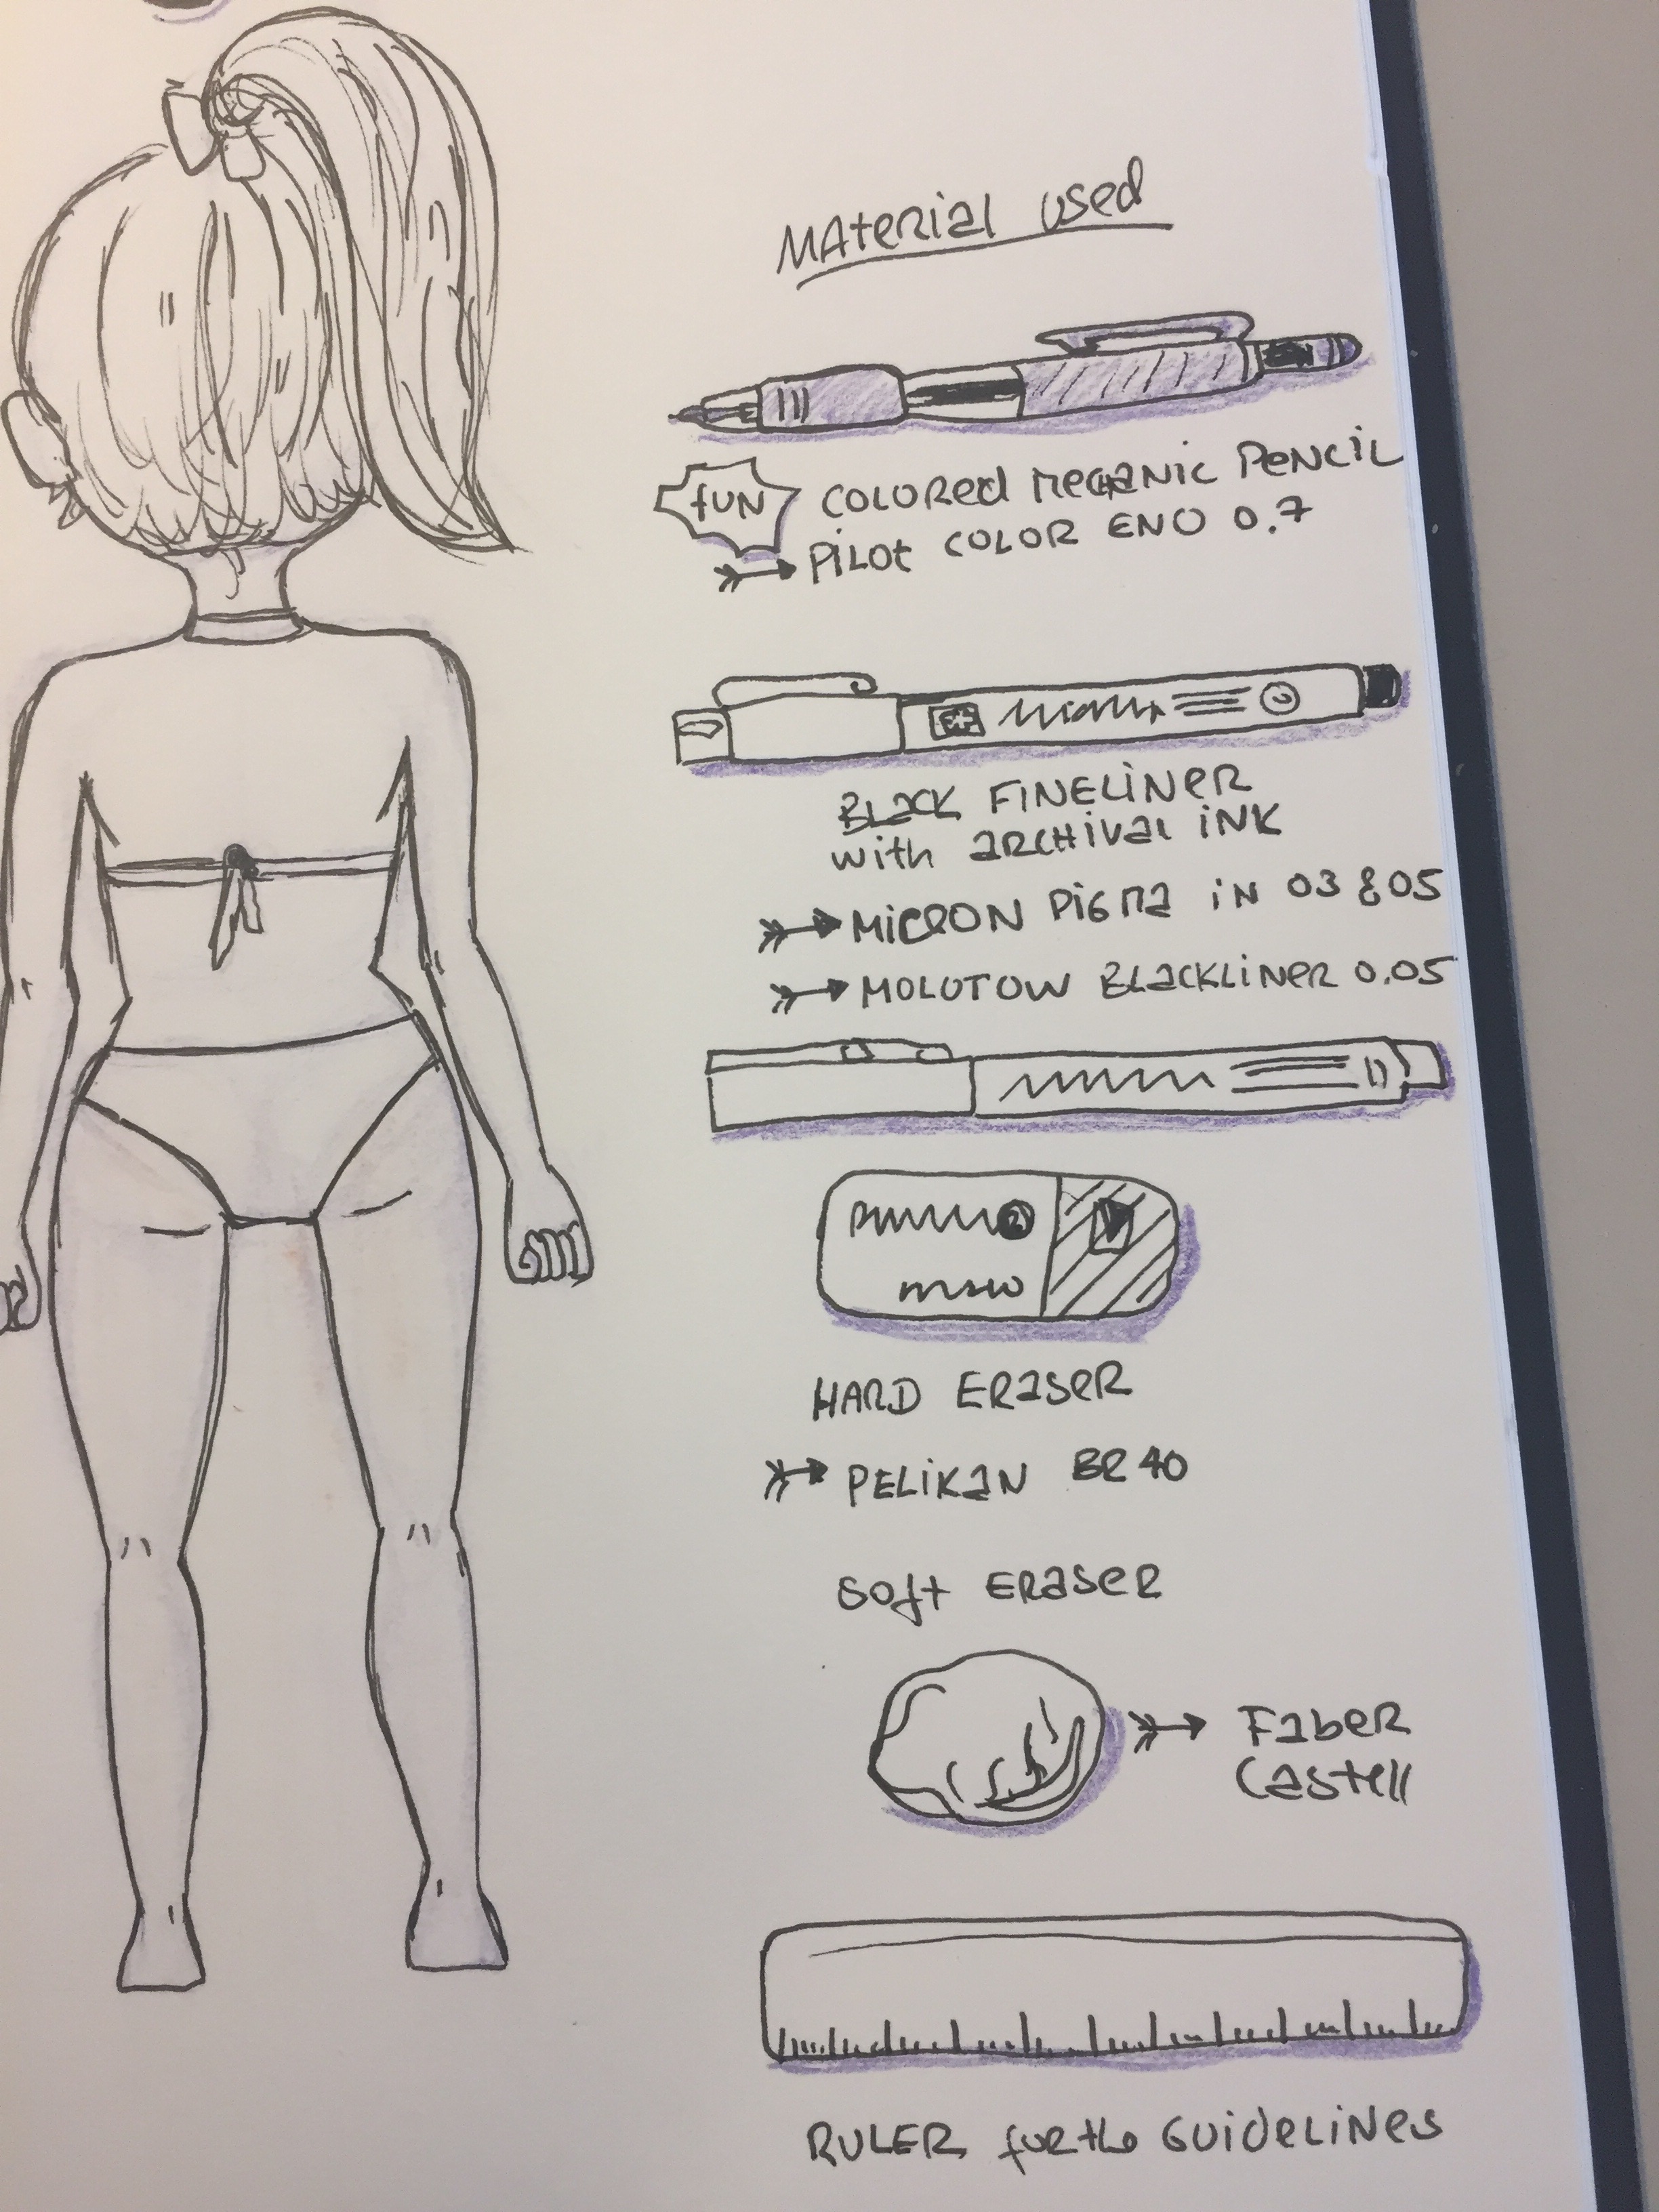 Material used
fun
Colored Mechanic Pencil
Pilot Color Eno 0.7
Black Fineliner
with archival ink
Micron Pigma in 03 & 05
Molotow Blackliner 0.05
Hard Eraser
Pelikan BR 40
Soft Eraser
Faber
Castell
Ruler for the Guidelines